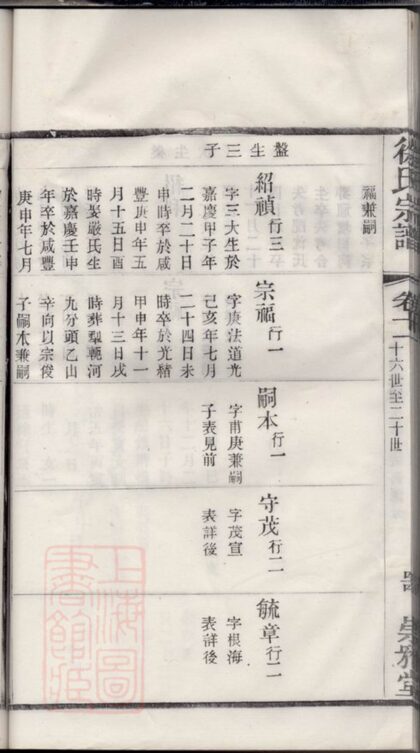 徐氏宗譜
卷二
十六世至二十世
崇雅堂
福兼嗣
盤生三子
紹禎行三
字三大生於
嘉慶甲子年
二月二十日
申時卒於咸
豐庚申年五
月十五日酉
時娶嚴氏生
於嘉慶壬申
年卒於咸豐
庚申年七月
宗福行一
字庚法道光
己亥年七月
二十四日未
時卒於光緒
甲申年十一
月十三日戌
時葬犂軛河
九分頭乙山
辛向以宗俊
子嗣本兼嗣
嗣本行一
字甫庚兼嗣
子表見前
守茂行二
字茂宣
表詳後
毓章行二
字根海
表詳後
上海圖
書館藏